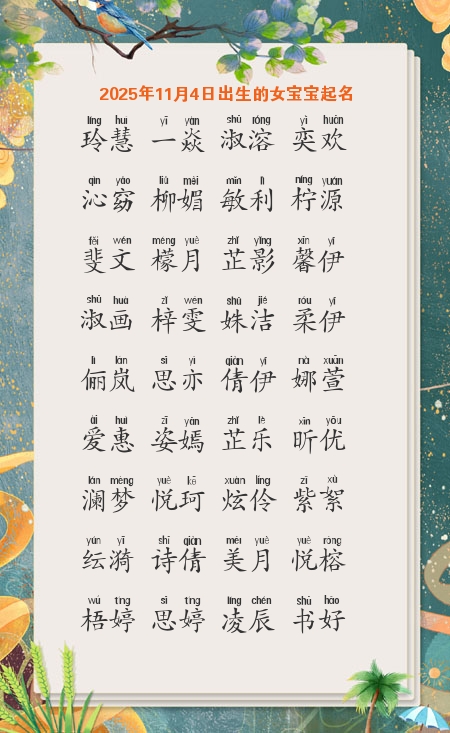 2025年11月4日出生的女宝宝起名
líng huì yī yàn shū róng yì huān
玲慧 一焱 淑溶 奕欢
qìn yǎo liǔ mèi mǐn lì níng yuán
沁窈 柳媚 敏利 柠源
fěi wén méng yuè zhǐ yǐng xīn yī
斐文 檬月 芷影 馨伊
shū huà zǐ wén shū jié róu yī
淑画 梓雯 姝洁 柔伊
lì lán sī yì qiàn yī nà xuān
俪岚 思亦 倩伊 娜萱
ài huì zī yān zhǐ lè xīn yōu
爱惠 姿嫣 芷乐 昕优
lán mèng yuè kē xuàn líng zǐ xù
澜梦 悦珂 炫伶 紫絮
yún yī shī qiàn měi yuè yuè róng
纭漪 诗倩 美月 悦榕
wú tíng sī tíng líng chén shū hǎo
梧婷 思婷 凌辰 书好